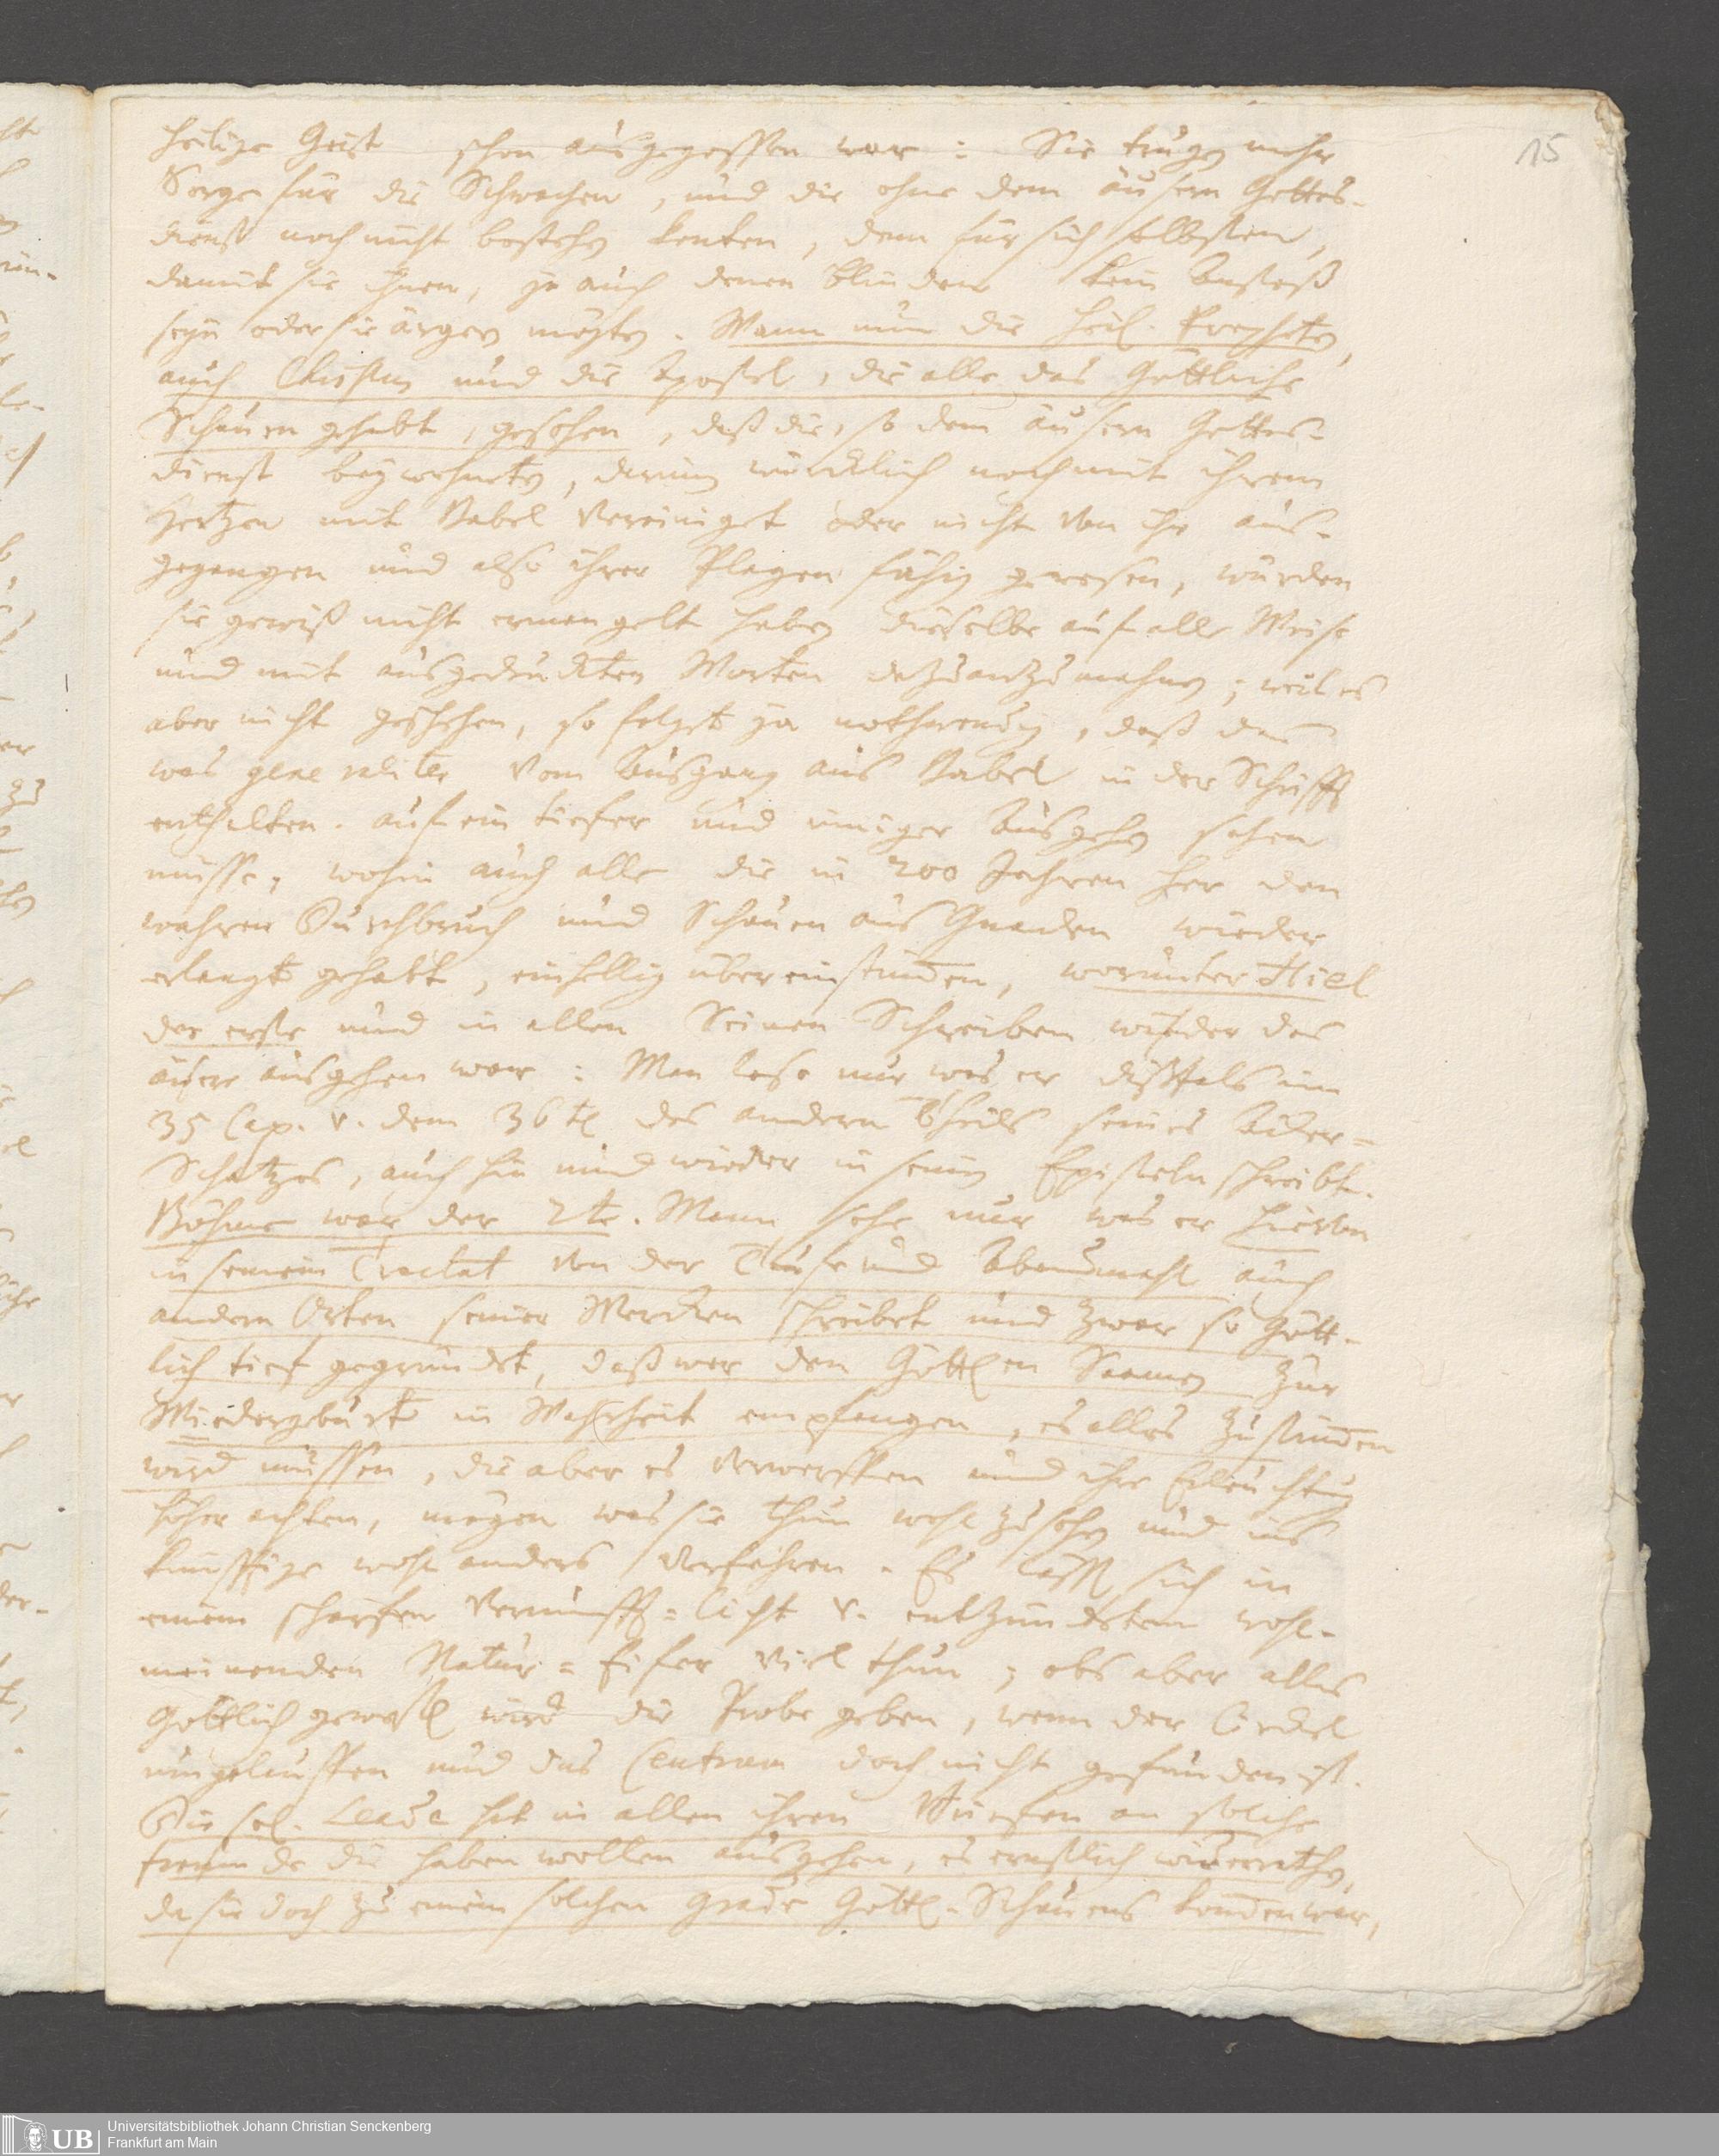 15
heilige Geist schon ausgegossen war: Sie trugen mehr
Sorge für die Schwachen, und die ohne dem äusern Gottes-
dienst noch nicht bestehen konten, dem für sich selbsten,
damit sie ihnen, ja auch denen blinden kein Anstoß
seyn oder sie ärgern mögten. Wann nun die heil. Propheten,
auch Christus und die Apostel, die alle das Göttliche
Schauen gehabt, gesehen, daß die, so dem äusern Gottes-
dienst beywohnten, darum würcklich noch mit ihrem
Hertzen mit Babel vereiniget oder nicht von ihr aus-
gegangen und also ihrer Plagen fähig gewesen, würden
sie gewiß nicht ermangelt haben dieselbe auf alle Weise
und mit ausgedruckten Worten dazu anzumahnen; weil es
aber nicht geschehen, so folgt ja nothwendig, daß das
was generaliter vom Ausgang aus Babel in der Schrifft
enthalten. auf ein tiefer und inniger Ausgehen sehen
müsse, wohin auch alle die in 200 Jahren her den
wahren Durchbruch und Schauen aus Gnaden wieder
erlangt gehabt, einhellig übereinstimen, worunter Hiel
der erste und in allen Seinen Schreiben wieder das
äusere ausgehen war: Man lese nur was er dißfals im
35 Cap. v. dem 36tl des andern Theils seines Acker-
Schatzes, auch hin und wieder in seinen Episteln schreibt.
Böhme war der 2te. Mann sehe nur was er hievon
in seinem Tractat von der Taufe und Abendmahl auch
andern Orten seiner Wercken schreibet und zwar so Gött-
lich tief gegründet, daß wer den Göttlen Saamen zur
Wiedergeburt in Wahrheit empfangen, es alles zustimen
wird müssen, die aber es verwerffen und ihre Erleuchtung
höher achten, mögen was sie thun wohl zusehen und ins
künfftige wohl anders verfahren. Es lässt sich in
einem scharfen Vernunfft-Licht v. entzündetem wohl-
meinenden Natur-Eifer viel thun; obs aber alles
Göttlich gewest wird die Probe geben, wenn der Circkel
umgelauffen und das Centrum doch nicht gefunden ist.
Die sel. Leade hat in allen ihren Briefen an solche
freunde die haben wollen ausgehen, es ernstlich wiederrathen,
da sie doch zu einem solchen grade Göttl. Schauens komen war,
UB Universitätsbibliothek Johann Christian Senckenberg
Frankfurt am Main